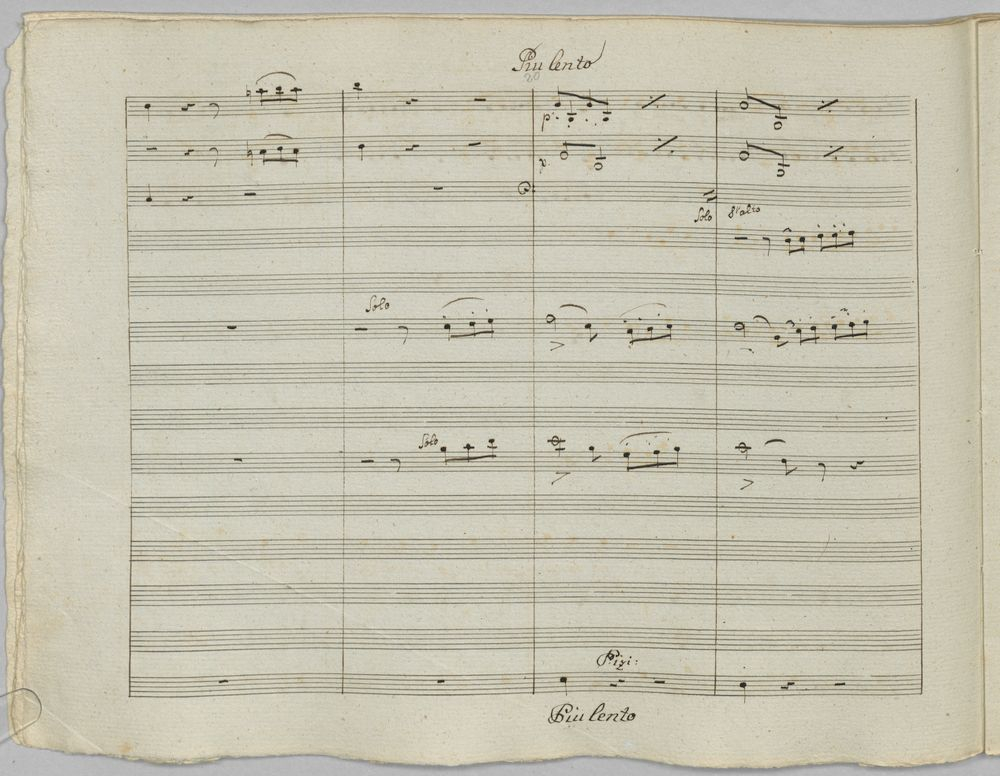 Piu lento
20
p.
p.
Solo 8va alto
Solo
Solo
Pizi:
Piu lento